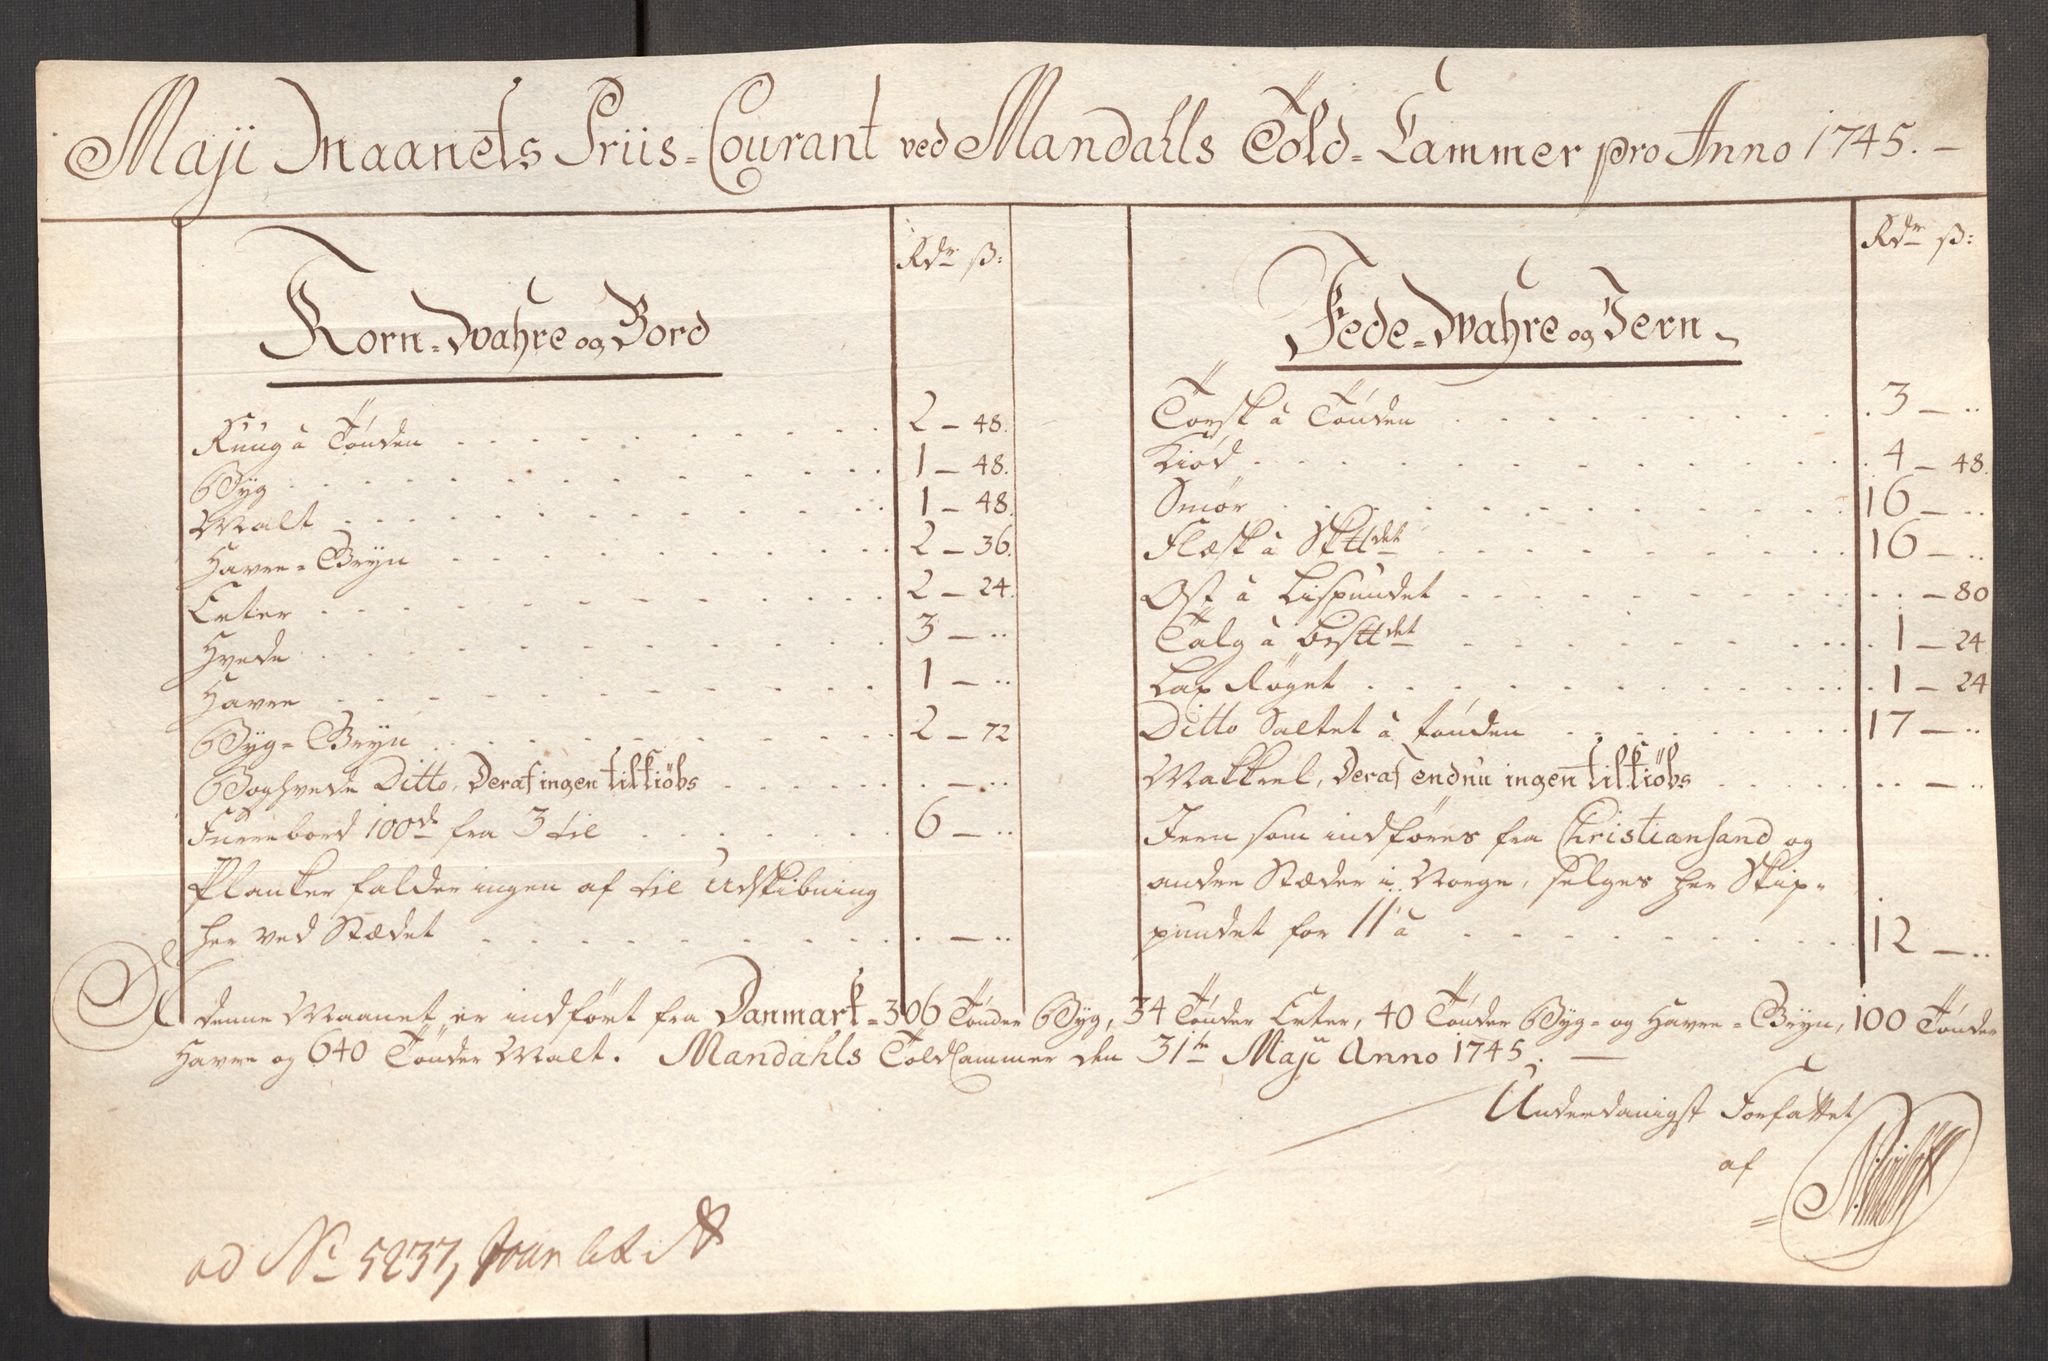 Maji Maanets Priis-Courant ved Mandahls Told-Cammer pro Anno 1745. –
Rdr ß:
Korn-Wahre og Bord
Ruug à Tønden . . . 2 – 48.
Byg . . . 1 – 48.
Malt . . . 1 – 48.
Havre-Gryn . . . 2 – 36.
Erter . . . 2 – 24.
Hvede . . . 3 – ..
Havre . . . 1 – ..
Byg-Gryn . . . 2 – 72
Boghvede Ditto, Deraf ingen til kiöbs . . . . – ..
Furrebord 100de fra 3 til . . . 6 – ..
Planker falder ingen af til Udskibning
her ved Stædet . . . . – ..
Rdr ß:
Fede-Wahre og Jern
Torsk à Tønden . . . 3 – ..
Kiød . . . 4 – 48.
Smør . . . 16 – ..
Flæsk à Skttdet . . . 16 – ..
Ost à Lispundet . . . . – 80
Talg à Bisttdet . . . 1 – 24
Lax Røget . . . 1 – 24
Ditto Saltet à tønden . . . 17 – ..
Makkrel, Deraf endnu ingen til kiöbs . . . .. – ..
Jern som indføres fra Christiansand og
andre Stæder i Norge, selges her Skip-
pundet for 11 à . . . 12 – ..
I denne Maanet er indført fra Danmark = 306 Tønder Byg, 34 Tønder Erter, 40 Tønder Byg- og Havre-Gryn, 100 Tønder
Havre og 640 Tønder Malt. Mandahls Told Cammer den 31te Maji Anno 1745. –
Underdanigst Forfattet
af
ad No 5237,